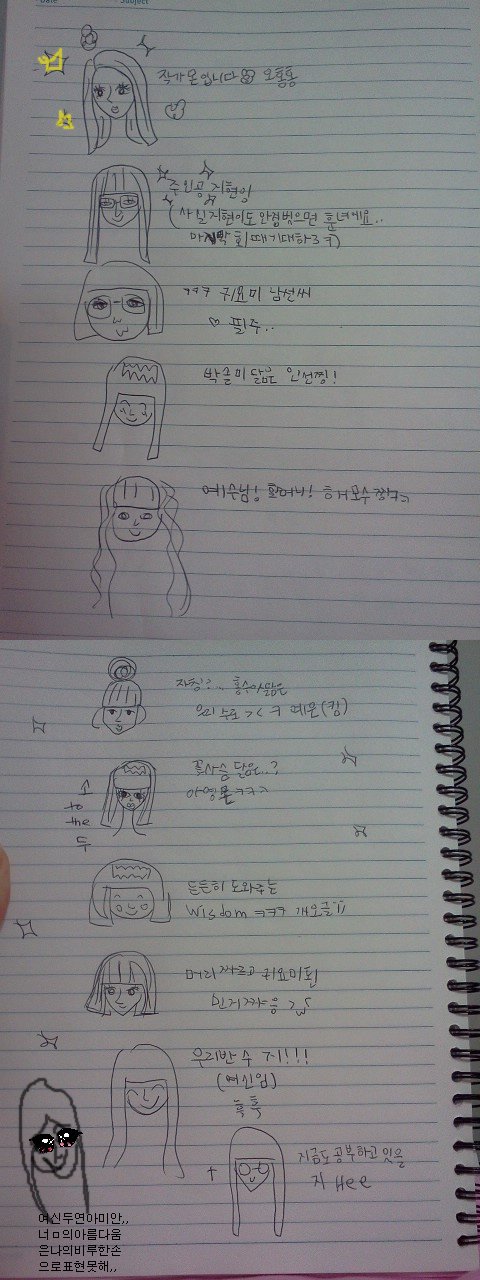 Date
Subject
작가 온입니다 오홍홍
주인공 지현잉
(사실 지현이도 안경벗으면 훈녀에요..
마지막 회때 기대하라구)
ㅋㅋㅋ 귀요미 남선씨
♡ 필주..
박글미 닮은 인선찡!
예수님! 할머니!
자칭?.. 홍수아닮은
꽃사슴 닮은..?
아영 ㅋㅋㅋ
소
to
the
두
든든히 도와주는
wisdom ㅋㅋㅋ
머리 짜르고 귀요미된
민지짜응
우리반 수지!!!
(여신임)
흑흑
+
지금도 공부하고 있을
지 Hee
여신두연아미안,,
너ㅁ의아름다움
은나의비루한손
으로표현못해,,